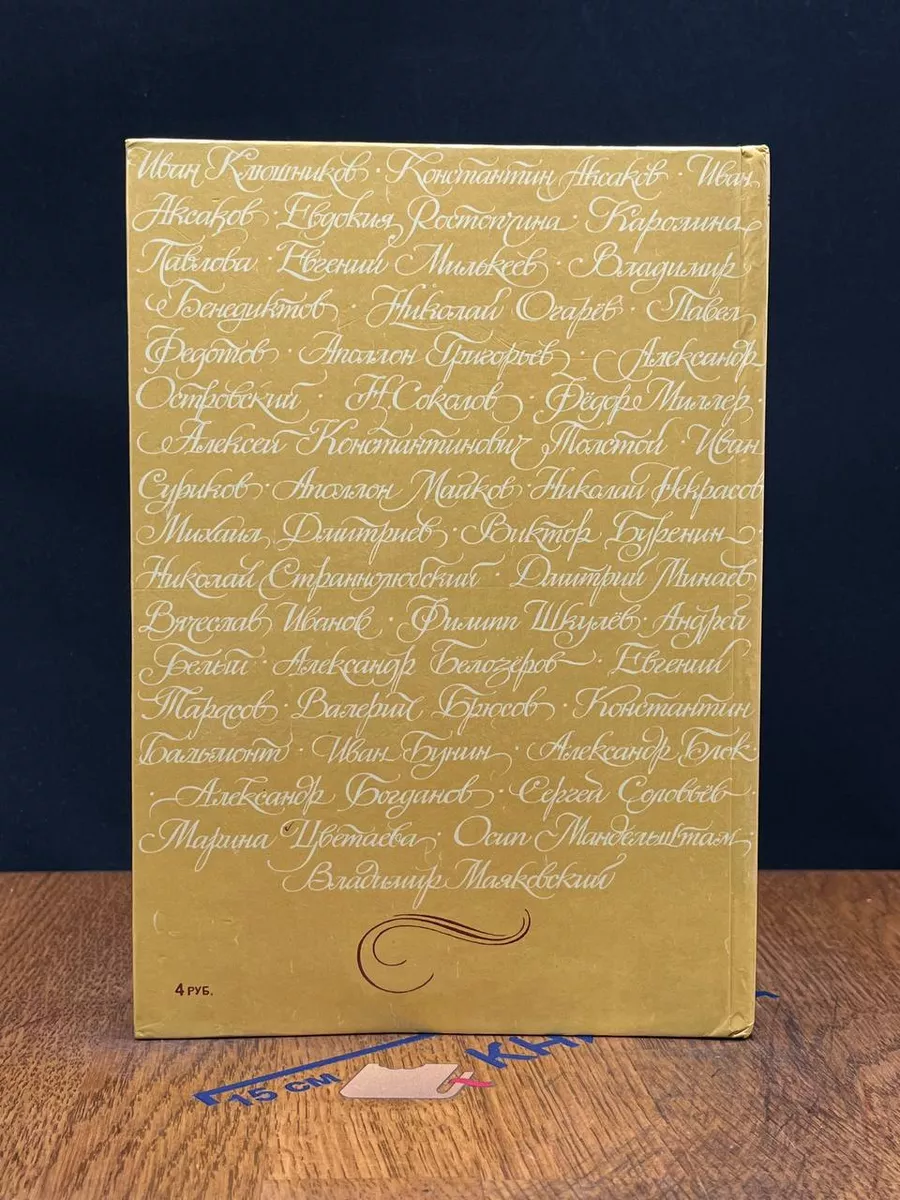 Иван Клюшников · Константин Аксаков · Иван
Аксаков · Евдокия Ростопчина · Каролина
Павлова · Евгений Милькеев · Владимир
Бенедиктов · Николай Огарёв · Павел
Федотов · Аполлон Григорьев · Александр
Островский · Н. Соколов · Фёдор Миллер ·
Алексей Константинович Толстой · Иван
Суриков · Аполлон Майков · Николай Некрасов
Михаил Дмитриев · Виктор Буренин ·
Николай Страннолюбский · Дмитрий Минаев
Вячеслав Иванов · Филипп Шкулёв · Андрей
Белый · Александр Белозёров · Евгений
Тарасов · Валерий Брюсов · Константин
Бальмонт · Иван Бунин · Александр Блок ·
· Александр Богданов · Сергей Соловьёв ·
Марина Цветаева · Осип Мандельштам
Владимир Маяковский
4 РУБ.
15 СМ